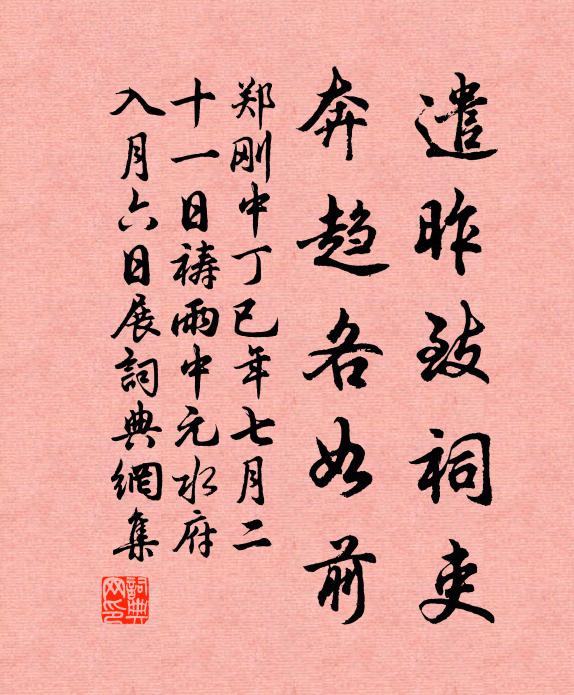 遣昨致祠吏
奔趋各如前
郑刚中丁巳年七月二
十一日祷雨中元水府
入月六日展詞典網集
詞典網印